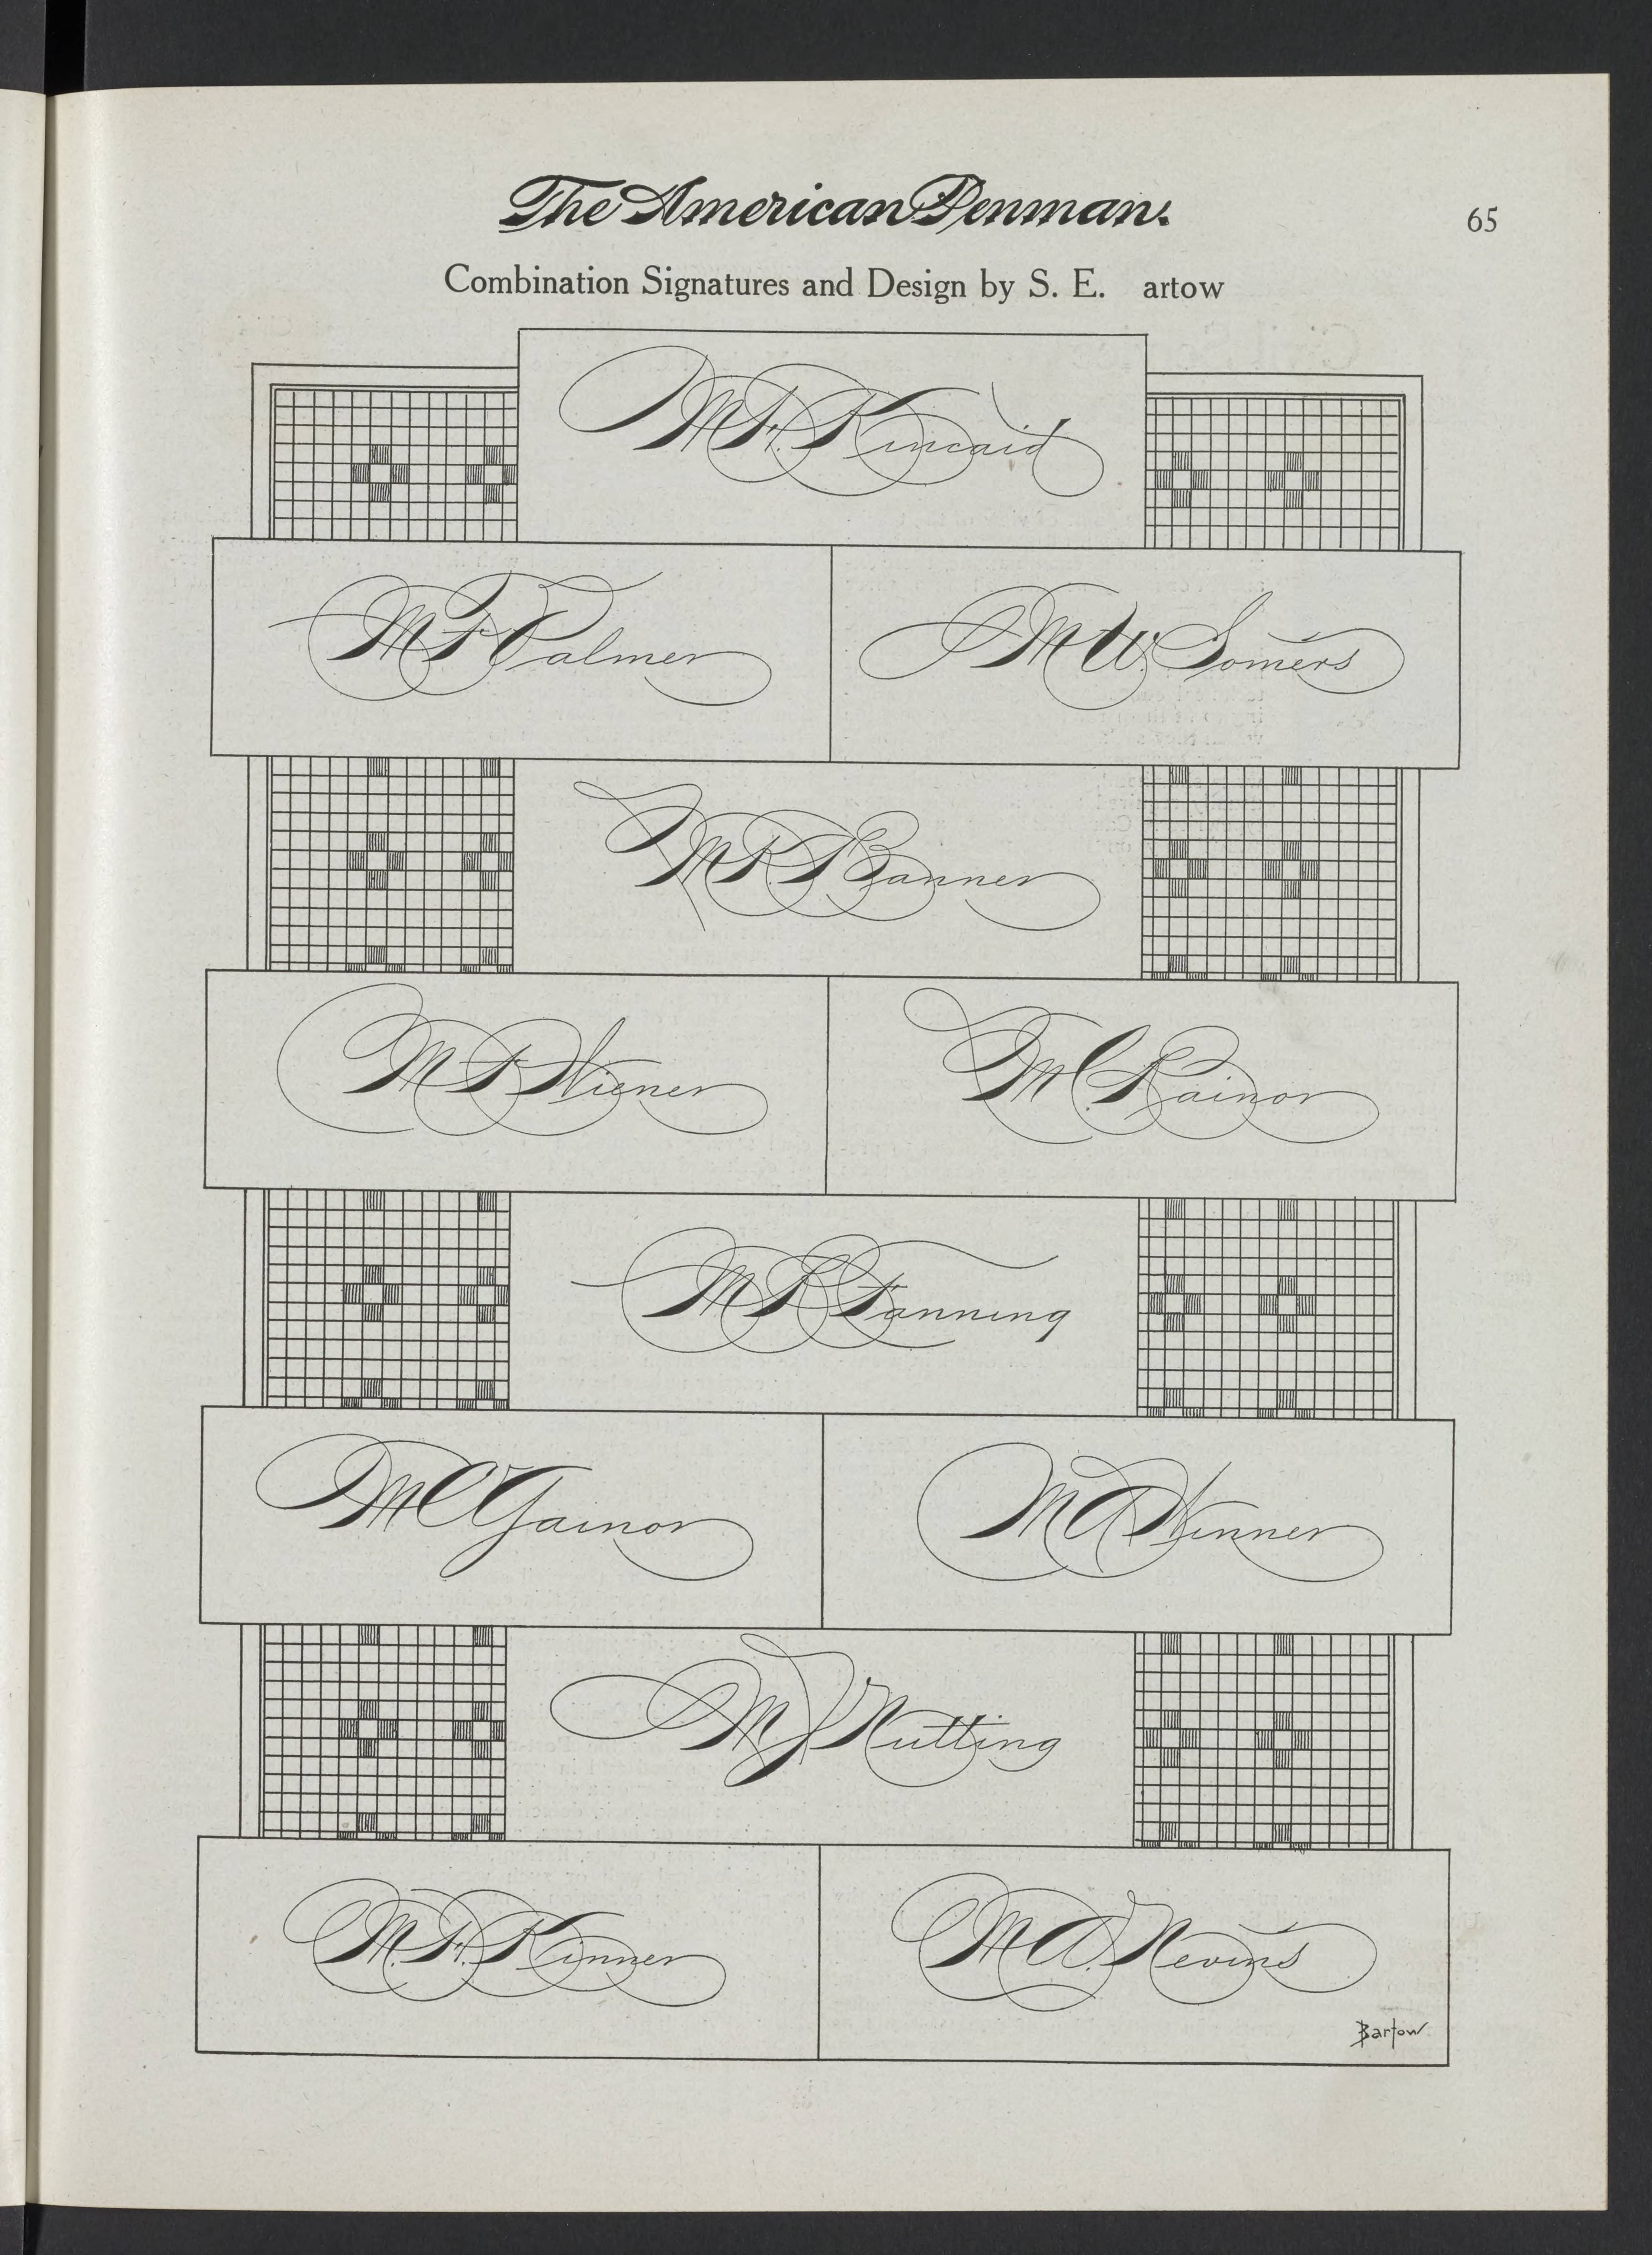 The American Penman.
65
Combination Signatures and Design by S. E. artow
M. F. Kincaid
M F Palmer
M W. Somers
M R Banner
M F Wiener
M C. Rainor
M R Fanning
M C Gainor
M A Winner
M J Nutting
M. F. Kinner
M A. Nevins
Bartow